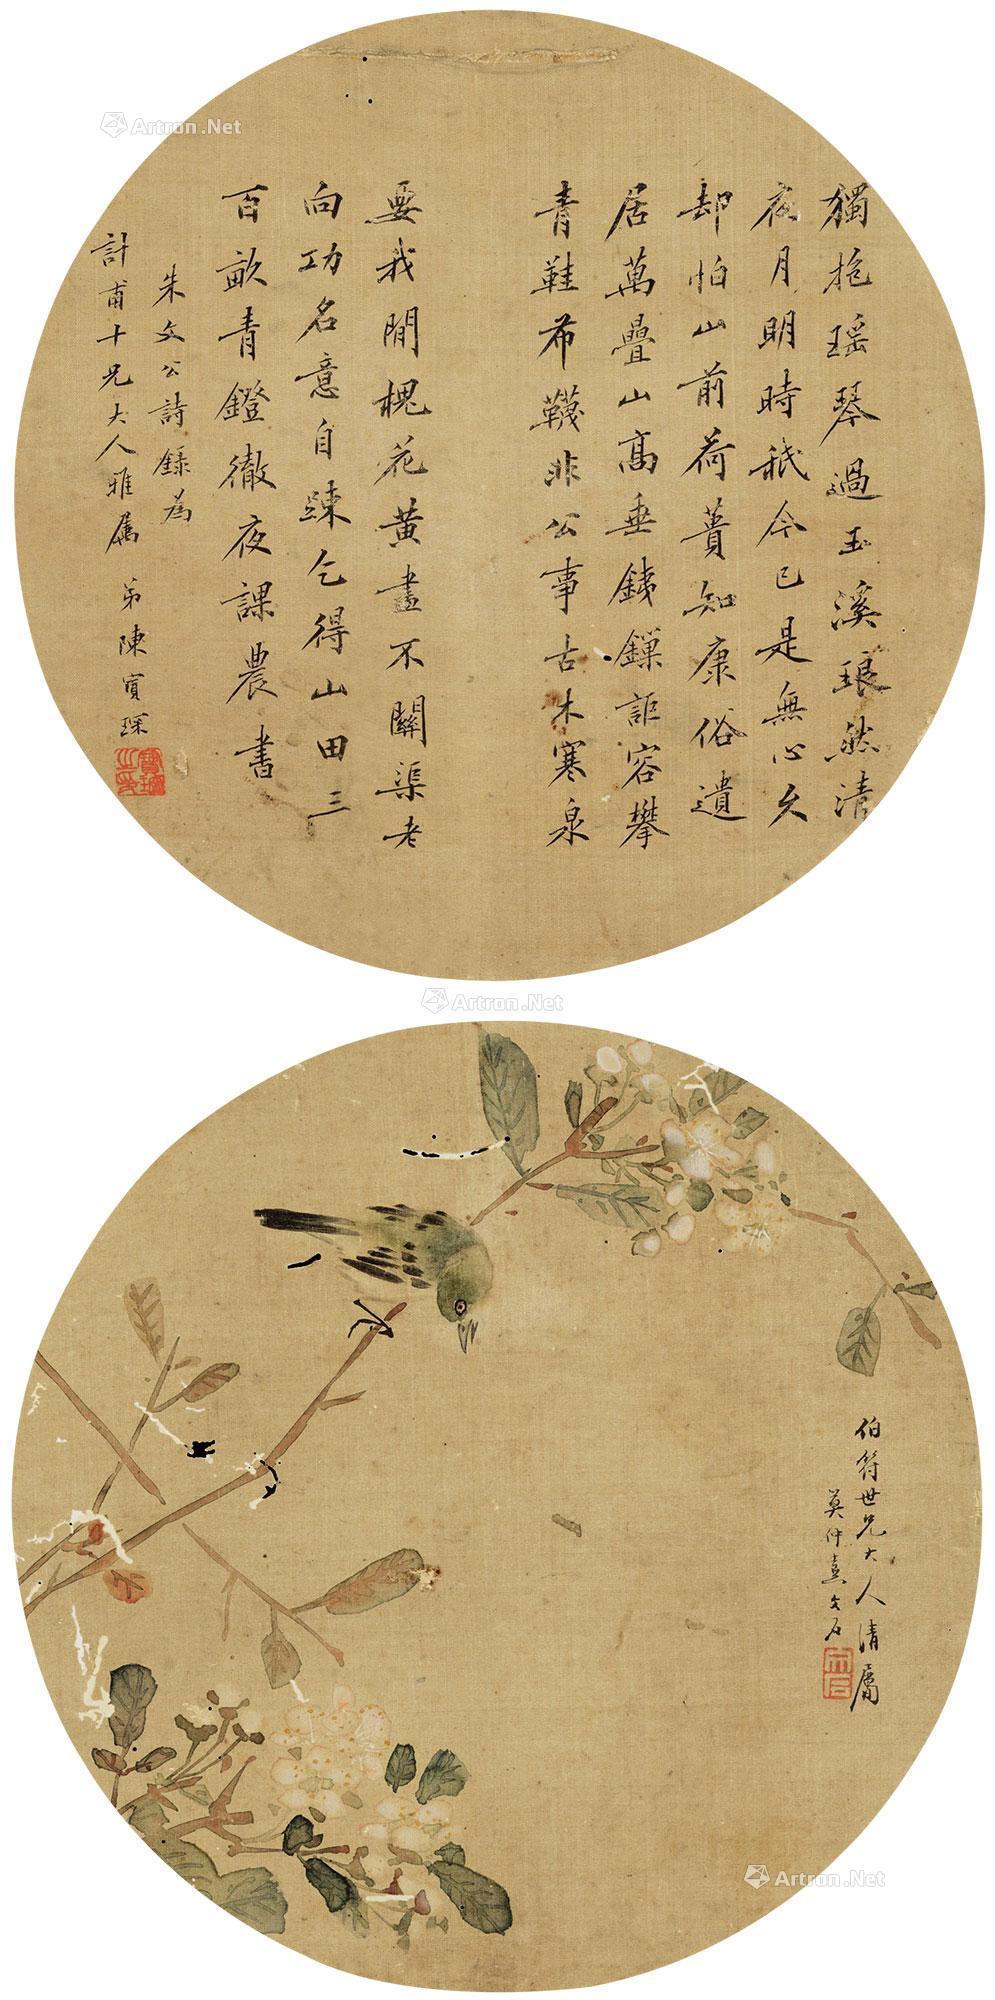 獨抱瑶琴過玉溪琅然清
夜月明時秖今已是無心久
却怕山前荷蕢知康俗遺
居萬疊山高垂銕鏁詎容攀
青鞋布韈非公事古木寒泉
要我閒槐花黄盡不關渠老
向功名意自踈乞得山田三
百畝青鐙徹夜課農書
朱文公詩録為
計甫十兄大人雅属 弟陳寶琛
寶琛之印
伯符世兄大人清屬
莫仲熹文石
文石
Artron.Net
Artron.Net
Artron.Net